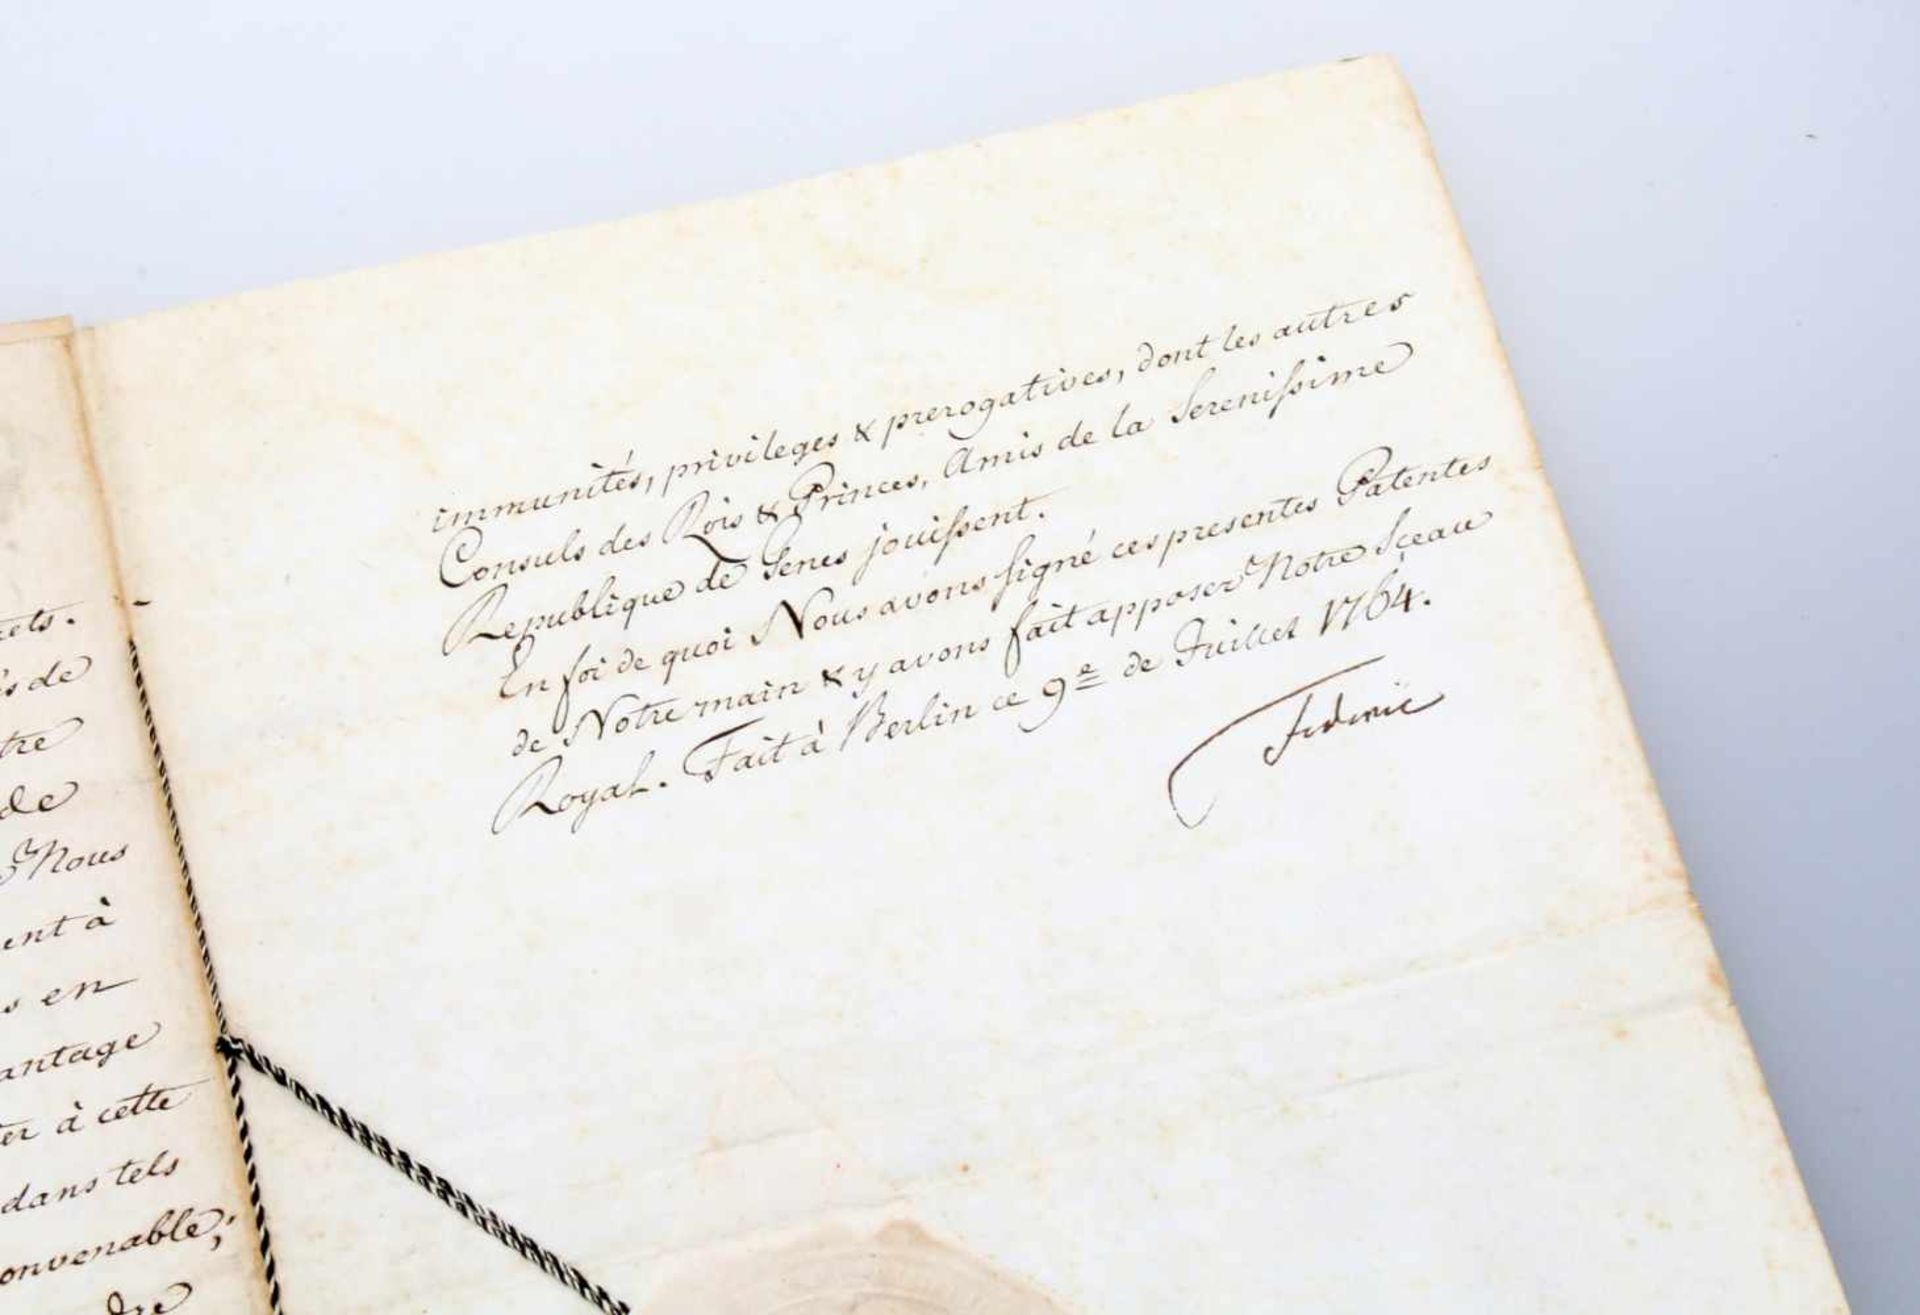 ets.
s de
tre
de
Nous
ent à
s en
antage
er à cette
dans tels
onvenable;
dre
immunités, privileges & prerogatives, dont les autres
Consuls des Rois & Princes, Amis de la Serenissime
Republique de Genes jouissent.
En foi de quoi Nous avons signé ces presentes Patentes
de Notre main & y avons fait apposer Notre Sçeau
Royal. Fait à Berlin ce 9e de Juillet 1764.
Federic